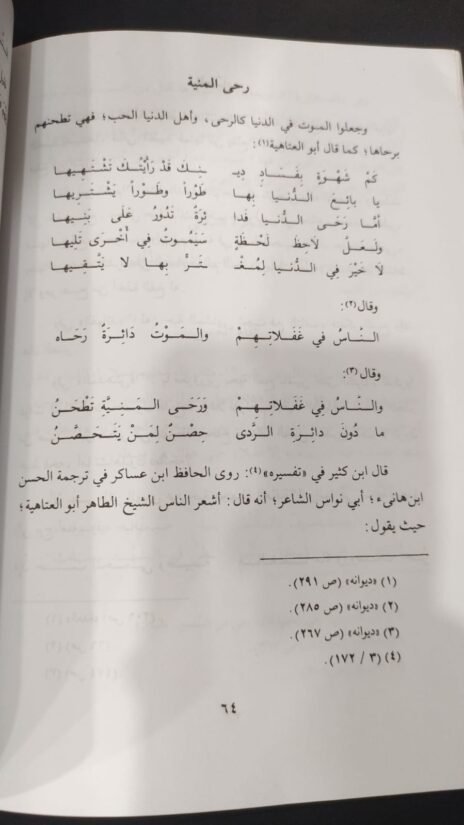 رحى المنية
وجعلوا الموت في الدنيا كالرحى، وأهل الدنيا الحب؛ فهي تطحنهم
برحاها؛ كما قال أبو العتاهية(١):
كَمْ شَهْوَةٍ بِفَسَادِ دِيـ ـنِكَ قَدْ رَأَيْتُكَ تَشْتَهِيهَا
يا بائِعَ الدُّنْيا بِها طَوْراً وطَوْراً يَشْتَرِيها
أمَّا رَحَى الدُّنيا فَدا ئِرَةٌ تَدُورُ عَلَى بَنِيها
ولَعَلَّ لَاحِظَ لَحْظَةٍ سَيَمُوتُ فِي أُخْرَى تَلِيْها
لَا خَيْرَ فِي الدُّنيا لِمُغْـ ـتَرٍّ بها لا يَتَّقِيها
وقال(٢):
النَّاسُ في غَفَلاتِهِمْ والمَوْتُ دَائِرَةٌ رَحَاه
وقال(٣):
والنَّاسُ فِي غَفَلاتِهِمْ وَرَحَى المَنِيَّةِ تَطْحَنُ
ما دُونَ دائِرَةِ الرَّدى حِصْنٌ لِمَنْ يَتَحَصَّنُ
قال ابن كثير في «تفسيره»(٤): روى الحافظ ابن عساكر في ترجمة الحسن
ابن هانىء؛ أبي نواس الشاعر؛ أنه قال: أشعر الناس الشيخ الطاهر أبو العتاهية؛
حيث يقول:
(١) «ديوانه» (ص ٢٩١).
(٢) «ديوانه» (ص ٢٨٥).
(٣) «ديوانه» (ص ٢٦٧).
(٤) (٣ / ١٧٢).
٦٤